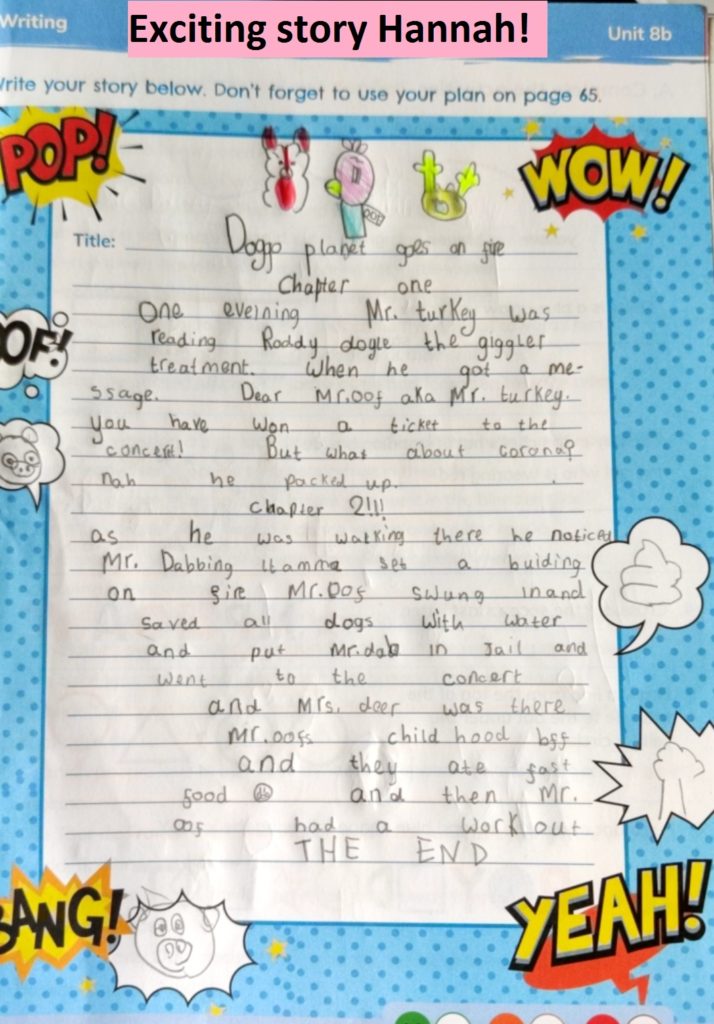 Writing
Exciting story Hannah!
Unit 8b
Write your story below. Don't forget to use your plan on page 65.
POP!
WOW!
Title: Doggo planet goes on fire
Chapter one
One evening Mr. turkey was
OOF!
reading Roddy dogle the giggler
treatment. When he got a me-
ssage. Dear Mr.oof aka Mr. turkey.
you have won a ticket to the
concert! But what about corona?
nah he packed up.
chapter 2!!!
as he was walking there he noticed
Mr. Dabbing llamma set a buiding
on fire Mr.Oof swung in and
saved all dogs with water
and put Mr.dab in Jail and
went to the concert
and Mrs. deer was there
Mr.oofs child hood bff
and they ate fast
food and then Mr.
oof had a work out
THE END
BANG!
YEAH!